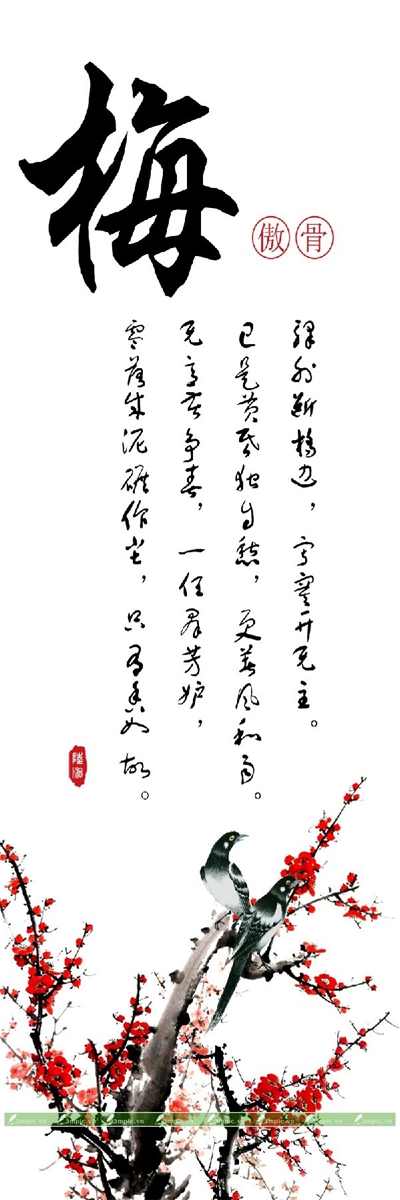 梅
傲骨
驿外断桥边,寂寞开无主。
已是黄昏独自愁,更著风和雨。
无意苦争春,一任群芳妒,
零落成泥碾作尘,只有香如故。
陸游
3mpic.vn 3mpic.vn 3mpic.vn 3mpic.vn 3mpic.vn 3mpic.vn 3mpic.vn